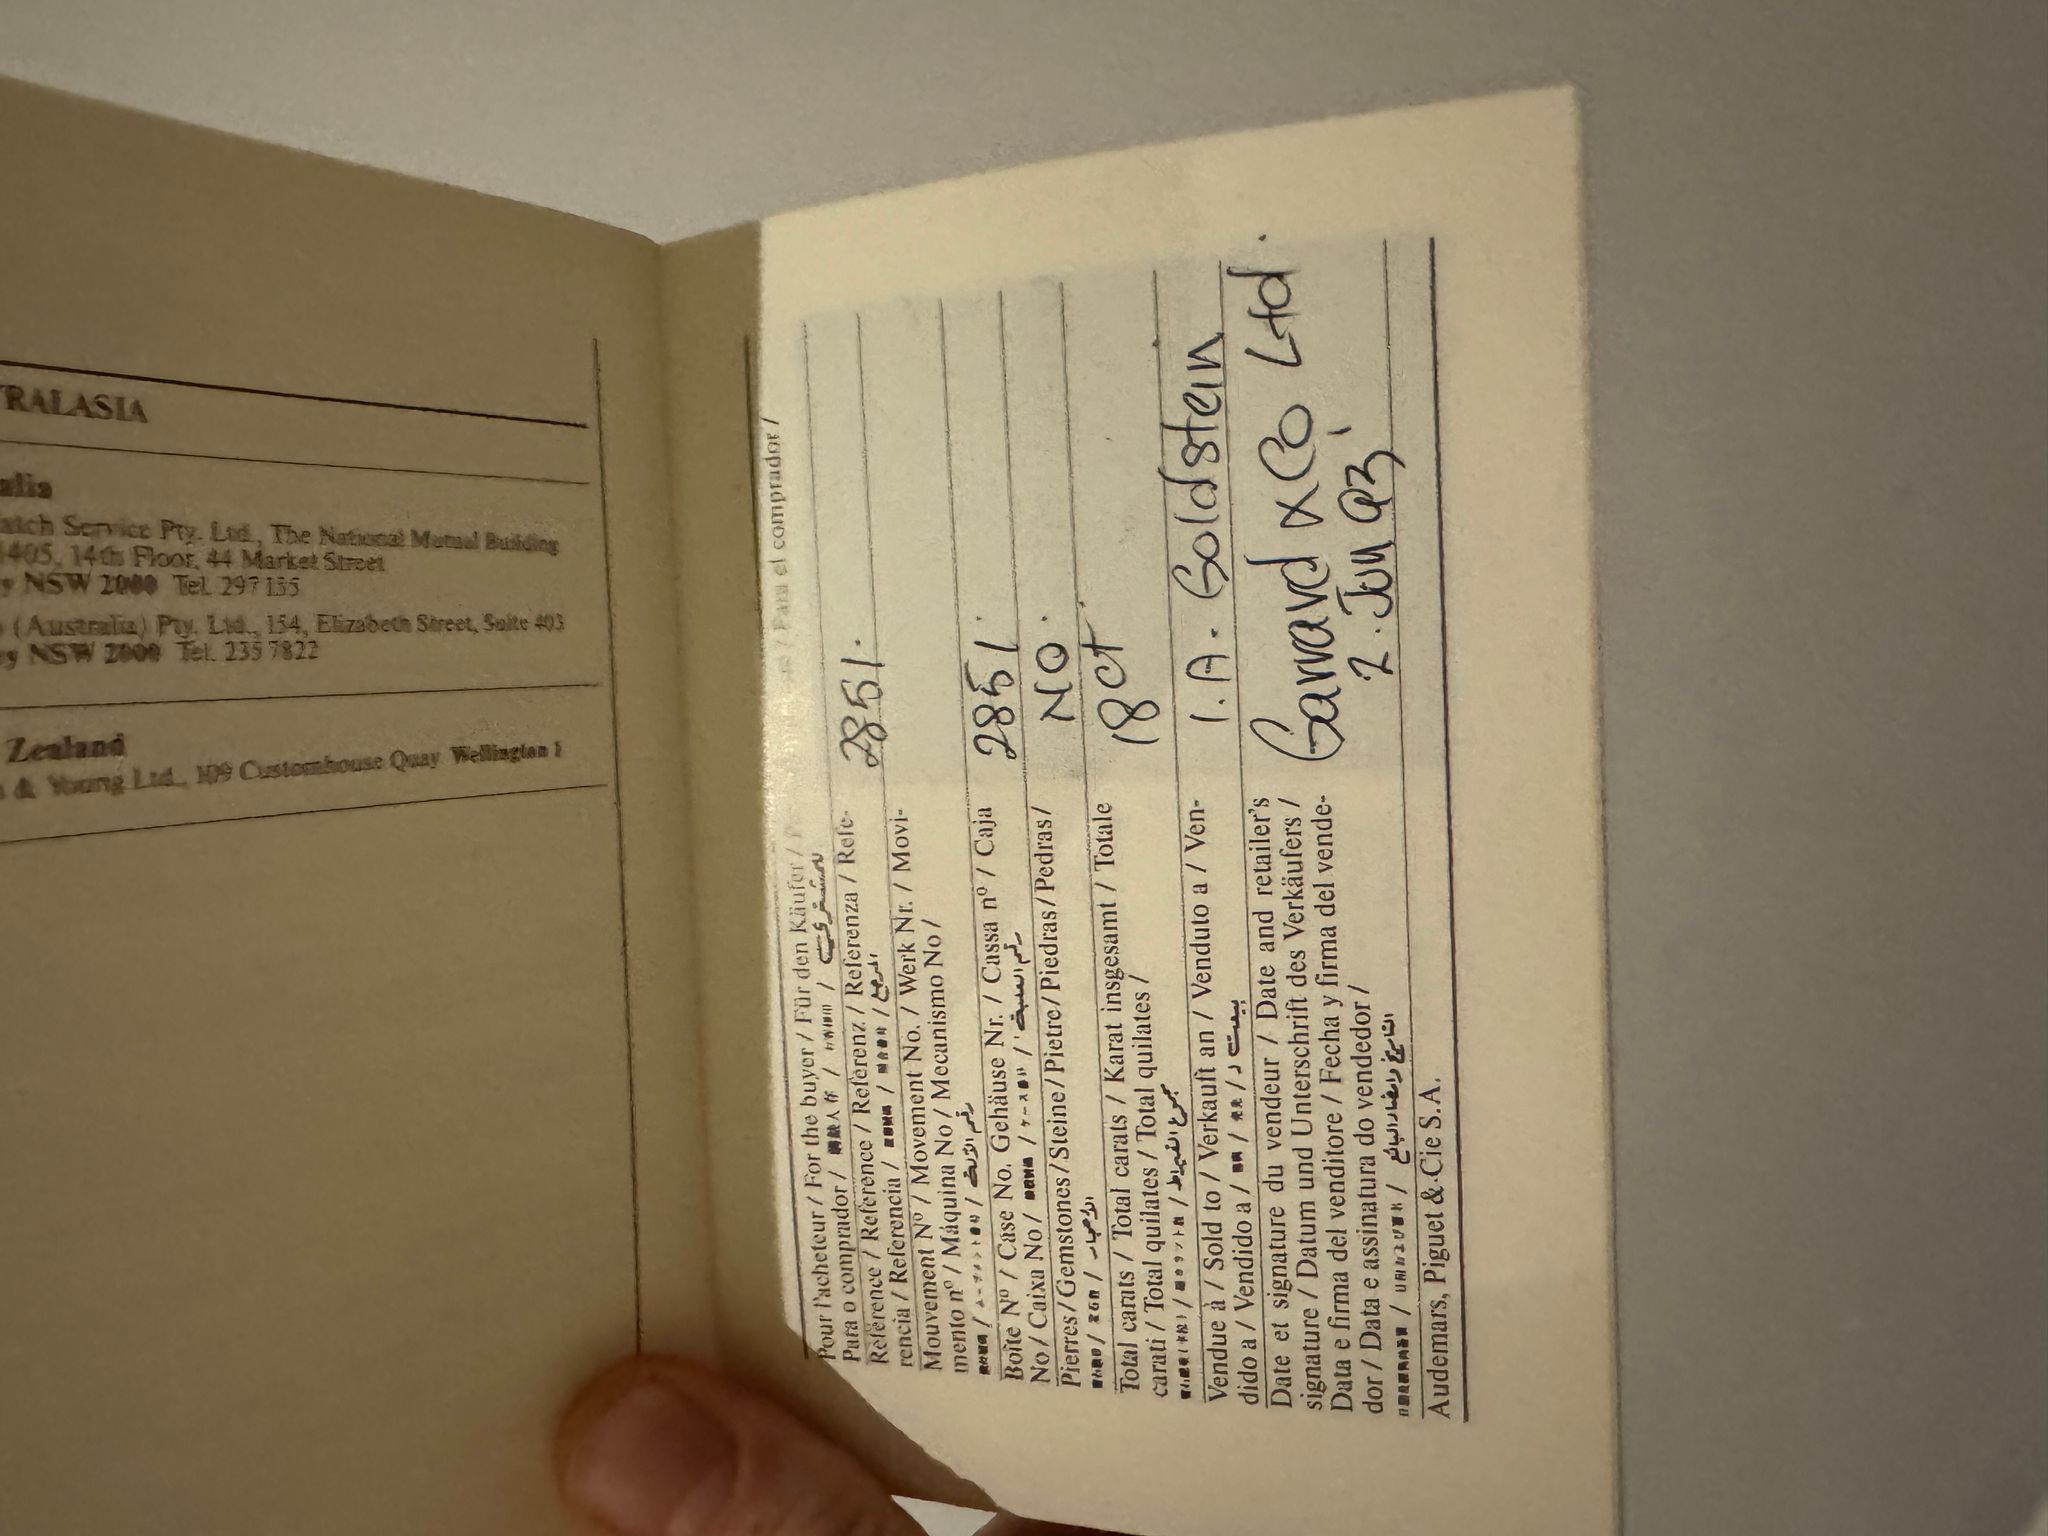 TRALASIA
alia
atch Service Pty. Ltd., The National Mutual Building
1405, 14th Floor, 44 Market Street
y NSW 2000 Tel. 297 135
(Australia) Pty. Ltd., 154, Elizabeth Street, Suite 403
y NSW 2000 Tel. 235 7822
Zealand
& Young Ltd., 109 Customhouse Quay Wellington 1
Pour l'acheteur / For the buyer / Für den Käufer / / Para el comprador /
Para o comprador /
Référence / Reference / Referenz / Referenza / Refe- 2851.
rencia / Referencia / المرجع
Mouvement Nº / Movement No. / Werk Nr. / Movi-
mento nº / Máquina No / Mecanismo No /
رقم الآلة
Boîte Nº / Case No. Gehäuse Nr. / Cassa nº / Caja 2851.
No / Caixa No / ケース番号 / رقم العلبة
Pierres / Gemstones / Steine / Pietre / Piedras / Pedras / NO.
الأحجار
Total carats / Total carats / Karat insgesamt / Totale 18ct
carati / Total quilates / Total quilates /
Vendue à / Sold to / Verkauft an / Venduto a / Ven- I. A. Goldstein
dido a / Vendido a /
Date et signature du vendeur / Date and retailer's Garrard & Co Ltd.
signature / Datum und Unterschrift des Verkäufers / 2. Jun 93,
Data e firma del venditore / Fecha y firma del vende-
dor / Data e assinatura do vendedor /
Audemars, Piguet & Cie S.A.